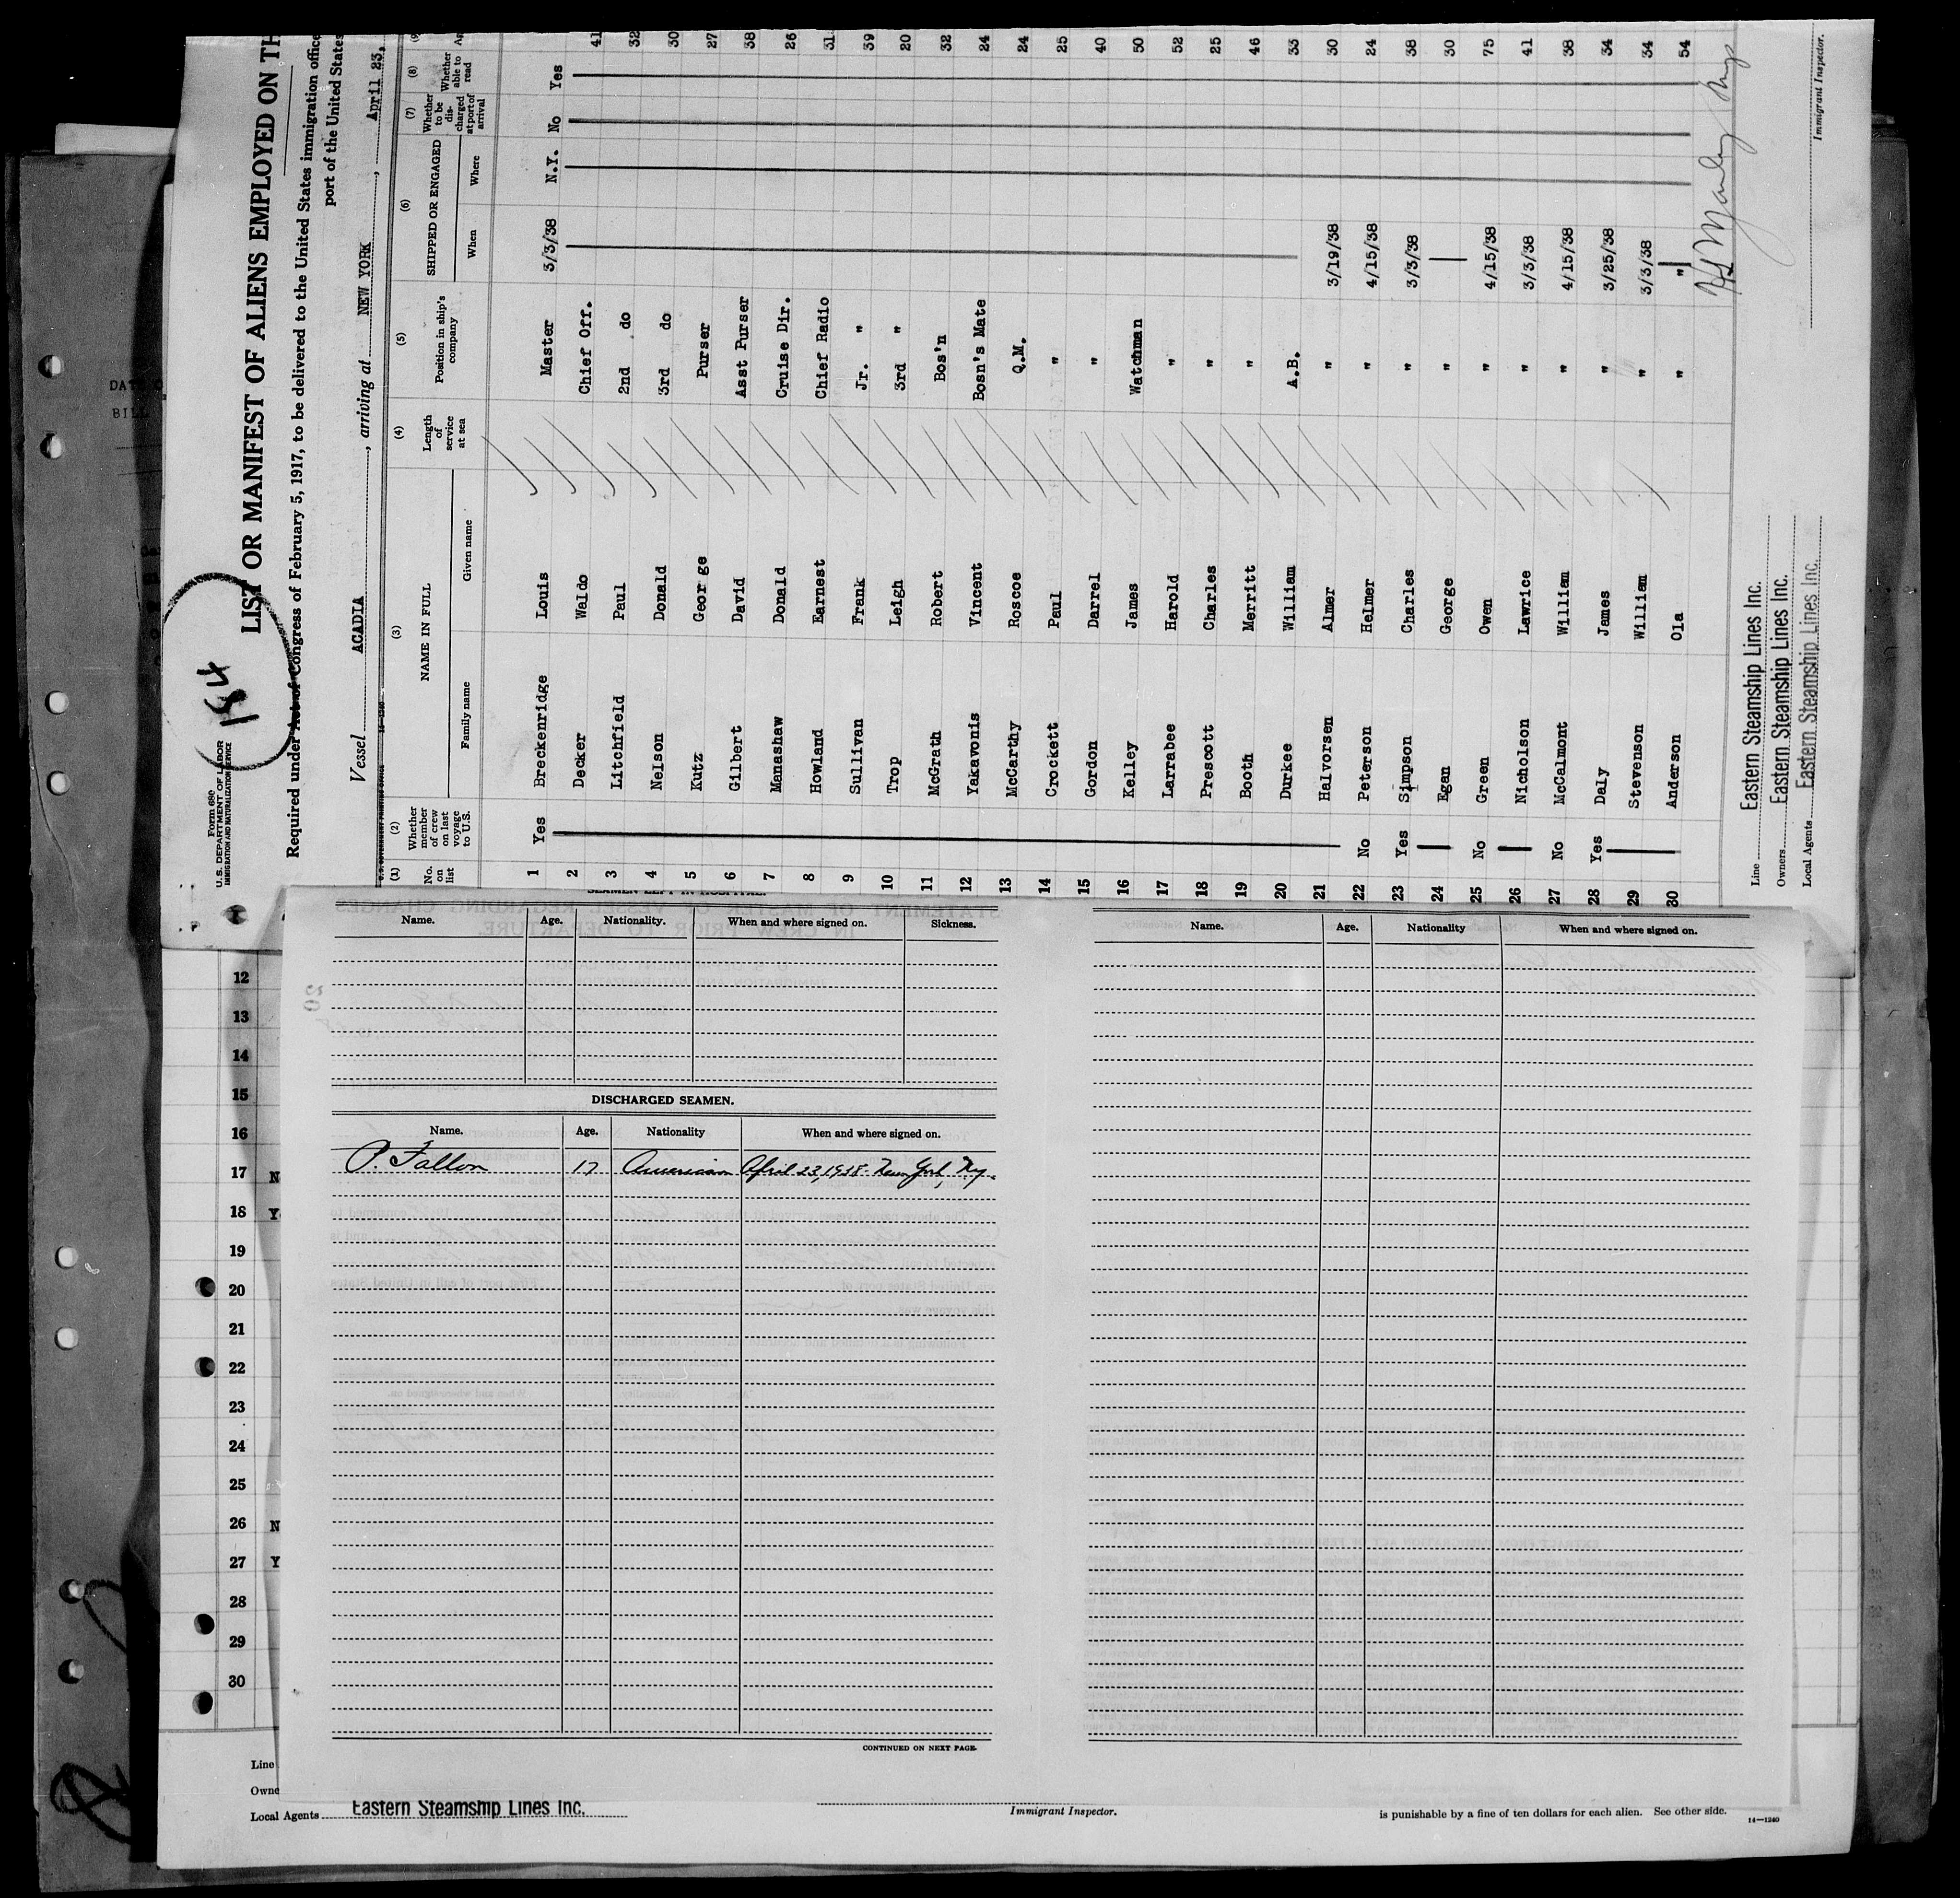 184
Form 680
U. S. DEPARTMENT OF LABOR
IMMIGRATION AND NATURALIZATION SERVICE
LIST OR MANIFEST OF ALIENS EMPLOYED ON TH
Required under Act of Congress of February 5, 1917, to be delivered to the United States immigration office
port of the United States
Vessel ACADIA, arriving at NEW YORK, April 23,
(1) (2) (3) (4) (5) (6) (7) (8) (9)
No. on list Whether member of crew on last voyage to U.S. NAME IN FULL Length of service at sea Position in ship's company SHIPPED OR ENGAGED Whether to be discharged at port of arrival Whether able to read
Family name Given name When Where
1 Yes Breckenridge Louis Master 3/3/38 N.Y. No Yes
2 Decker Waldo Chief Off. 41
3 Litchfield Paul 2nd do 32
4 Nelson Donald 3rd do 30
5 Kutz George Purser 27
6 Gilbert David Asst Purser 38
7 Manashaw Donald Cruise Dir. 26
8 Howland Earnest Chief Radio 31
9 Sullivan Frank Jr. " 39
10 Trop Leigh 3rd " 20
11 McGrath Robert Bos'n 32
12 Yakavonis Vincent Bosn's Mate 24
13 McCarthy Roscoe Q.M. 24
14 Crockett Paul " 25
15 Gordon Darrel " 40
16 Kelley James Watchman 50
17 Larrabee Harold " 52
18 Prescott Charles " 25
19 Booth Merritt " 46
20 Durkee William A.B. 33
21 Halvorsen Almer " 3/19/38 30
22 No Peterson Helmer " 4/15/38 24
23 Yes Simpson Charles " 3/3/38 38
24 Egan George " 30
25 No Green Owen " 4/15/38 75
26 Nicholson Lawrice " 3/3/38 41
27 No McCalmont William " 4/15/38 38
28 Yes Daly James " 3/25/38 34
29 Stevenson William " 3/3/38 34
30 Anderson Ola " " 54
Line Eastern Steamship Lines Inc.
Owners Eastern Steamship Lines Inc.
Local Agents Eastern Steamship Lines Inc.
Immigrant Inspector.
Name. Age. Nationality. When and where signed on. Sickness.
DISCHARGED SEAMEN.
Name. Age. Nationality When and where signed on.
P. Fallon 17 American April 23, 1938 New York, Ny.
CONTINUED ON NEXT PAGE.
Name. Age. Nationality When and where signed on.
12
13
14
15
16
17 N
18 Y
19
20
21
22
23
24
25
26 N
27 Y
28
29
30
Line
Owne
Local Agents Eastern Steamship Lines Inc.
Immigrant Inspector.
is punishable by a fine of ten dollars for each alien. See other side.
14—1240